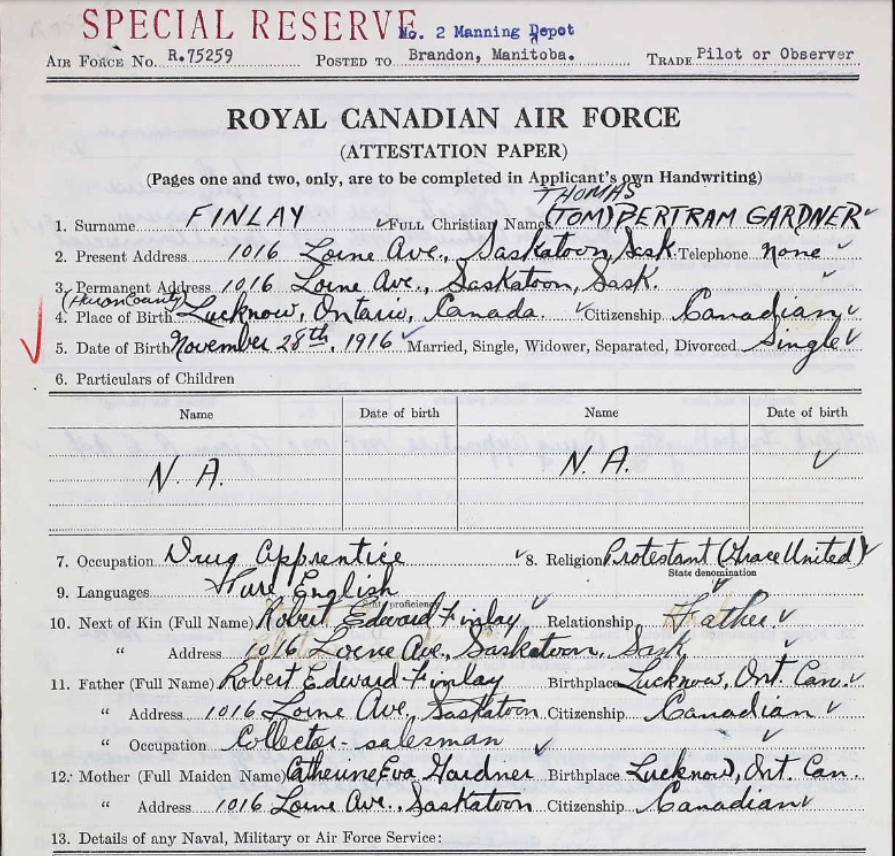 SPECIAL RESERVE
No. 2 Manning Depot
AIR FORCE No. R.75259 POSTED TO Brandon, Manitoba. TRADE Pilot or Observer
ROYAL CANADIAN AIR FORCE
(ATTESTATION PAPER)
(Pages one and two, only, are to be completed in Applicant's own Handwriting)
THOMAS
1. Surname FINLAY ✓ FULL Christian Names (TOM) BERTRAM GARDNER ✓
2. Present Address 1016 Lorne Ave., Saskatoon, Sask. Telephone none ✓
3. Permanent Address 1016 Lorne Ave., Saskatoon, Sask. ✓
(Huron County)
4. Place of Birth Lucknow, Ontario, Canada. ✓ Citizenship Canadian ✓
✓ 5. Date of Birth November 28th, 1916 ✓ Married, Single, Widower, Separated, Divorced Single ✓
6. Particulars of Children
Name Date of birth Name Date of birth
N. A. N. A. ✓
7. Occupation Drug Apprentice ✓ 8. Religion Protestant (Grace United) ✓
State denomination
9. Languages English ✓
State proficiency
10. Next of Kin (Full Name) Robert Edward Finlay ✓ Relationship Father ✓
" Address 1016 Lorne Ave., Saskatoon, Sask ✓
11. Father (Full Name) Robert Edward Finlay Birthplace Lucknow, Ont. Can. ✓
" Address 1016 Lorne Ave, Saskatoon Citizenship Canadian ✓
" Occupation Collector-salesman ✓ ✓
12. Mother (Full Maiden Name) Catherine Eva Gardner Birthplace Lucknow, Ont. Can.
" Address 1016 Lorne Ave., Saskatoon Citizenship Canadian ✓
13. Details of any Naval, Military or Air Force Service: